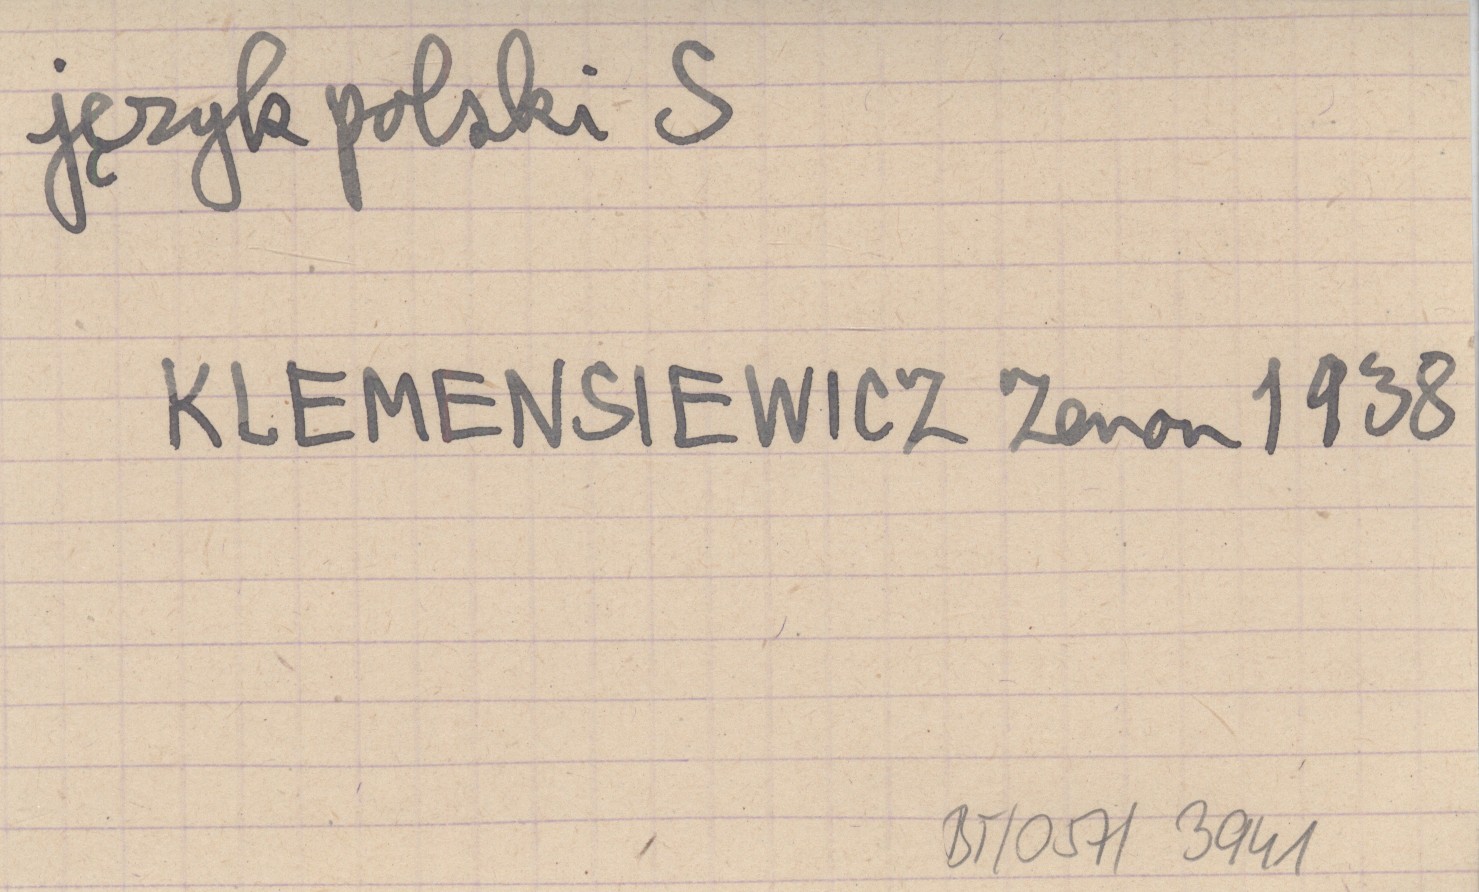 język polski S
KLEMENSIEWICZ Zenon 1938
BT/057/ 3941